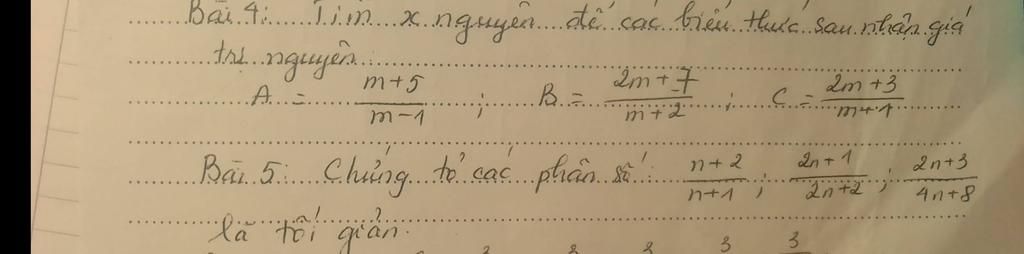 Bài 4: Tìm x nguyên để các biểu thức sau nhận giá
trị nguyên.
A = (m+5)/(m-1) ; B = (2m+7)/(m+2) ; C = (2m+3)/(m+1)
Bài 5: Chứng tỏ các phân số: (n+2)/(n+1) ; (2n+1)/(2n+2) ; (2n+3)/(4n+8)
là tối giản.